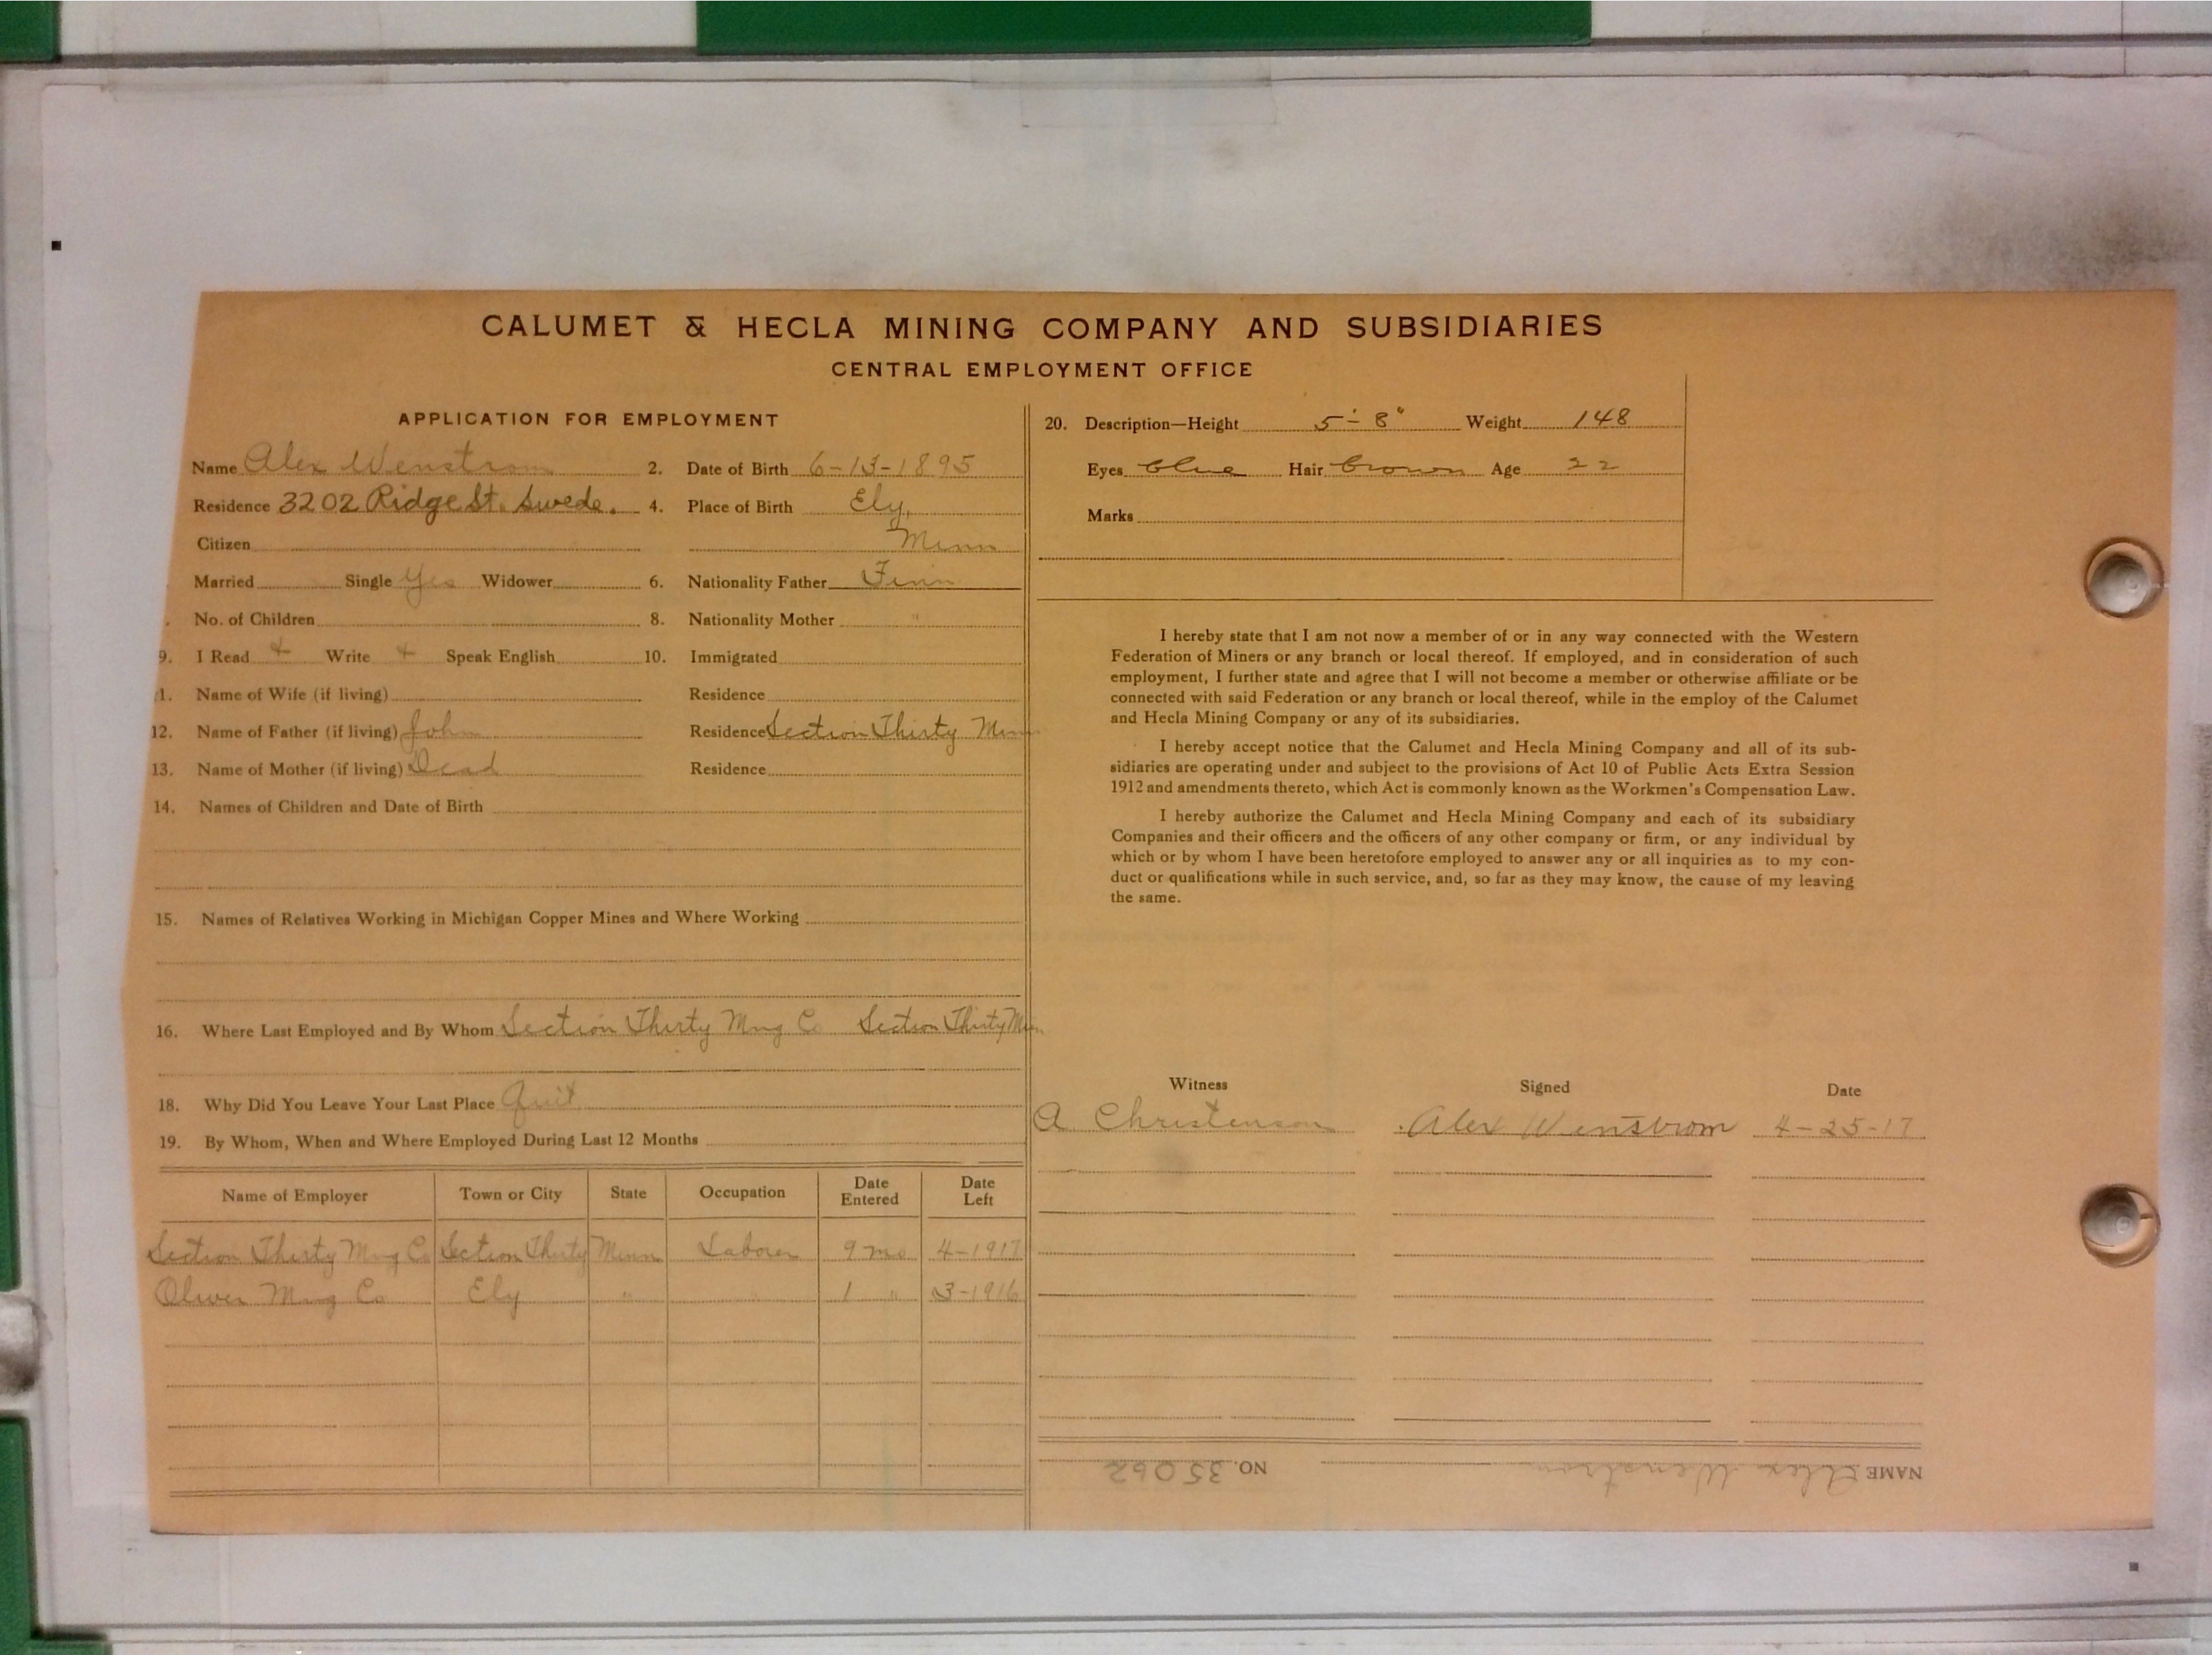 CALUMET & HECLA MINING COMPANY AND SUBSIDIARIES
CENTRAL EMPLOYMENT OFFICE
APPLICATION FOR EMPLOYMENT
Name Alex Wenstrom 2. Date of Birth 6-13-1895
Residence 3202 Ridge St. Swede. 4. Place of Birth Ely,
Citizen Minn
Married Single Yes Widower 6. Nationality Father Finn
No. of Children 8. Nationality Mother "
9. I Read + Write + Speak English 10. Immigrated
1. Name of Wife (if living) Residence
12. Name of Father (if living) John Residence Section Thirty Minn
13. Name of Mother (if living) Dead Residence
14. Names of Children and Date of Birth
15. Names of Relatives Working in Michigan Copper Mines and Where Working
16. Where Last Employed and By Whom Section Thirty Mng Co Section Thirty Minn
18. Why Did You Leave Your Last Place Quit
19. By Whom, When and Where Employed During Last 12 Months
Name of Employer Town or City State Occupation Date Entered Date Left
Section Thirty Mng Co Section Thirty Minn Laborer 9 mo 4-1917
Oliver Mng Co Ely " " 1 " 3-1916
20. Description—Height 5'-8" Weight 148
Eyes blue Hair brown Age 22
Marks
I hereby state that I am not now a member of or in any way connected with the Western
Federation of Miners or any branch or local thereof. If employed, and in consideration of such
employment, I further state and agree that I will not become a member or otherwise affiliate or be
connected with said Federation or any branch or local thereof, while in the employ of the Calumet
and Hecla Mining Company or any of its subsidiaries.
I hereby accept notice that the Calumet and Hecla Mining Company and all of its sub-
sidiaries are operating under and subject to the provisions of Act 10 of Public Acts Extra Session
1912 and amendments thereto, which Act is commonly known as the Workmen's Compensation Law.
I hereby authorize the Calumet and Hecla Mining Company and each of its subsidiary
Companies and their officers and the officers of any other company or firm, or any individual by
which or by whom I have been heretofore employed to answer any or all inquiries as to my con-
duct or qualifications while in such service, and, so far as they may know, the cause of my leaving
the same.
Witness Signed Date
A Christenson Alex Wenstrom 4-25-17
NAME Alex Wenstrom NO. 35062